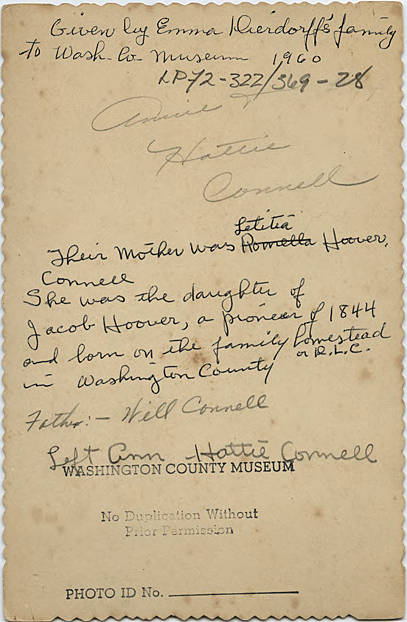 Given by Emma Dierdorff's family
to Wash. Co. Museum 1960
LP72-322/369-28
Annie &
Hattie
Connell
Letitia
Their Mother was Romella Hoover,
Connell
She was the daughter of
Jacob Hoover, a pioneer of 1844
and born on the family homestead
or D.L.C.
in Washington County
Father:- Will Connell
Left Ann - Hattie Connell
WASHINGTON COUNTY MUSEUM
No Duplication Without
Prior Permission
PHOTO ID No.